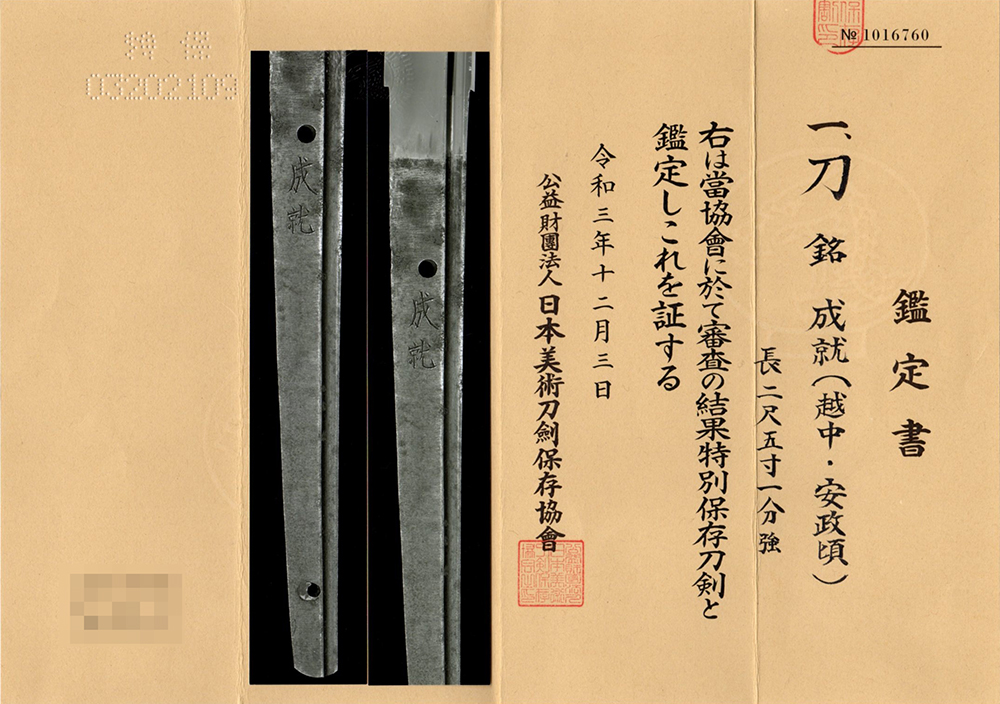 № 1016760
鑑定書
一、刀 銘 成就(越中・安政頃)
長二尺五寸一分強
右は當協會に於て審査の結果特別保存刀剣と
鑑定しこれを証する
令和三年十二月三日
公益財團法人日本美術刀劍保存協會
成就
成就
特保
03202109